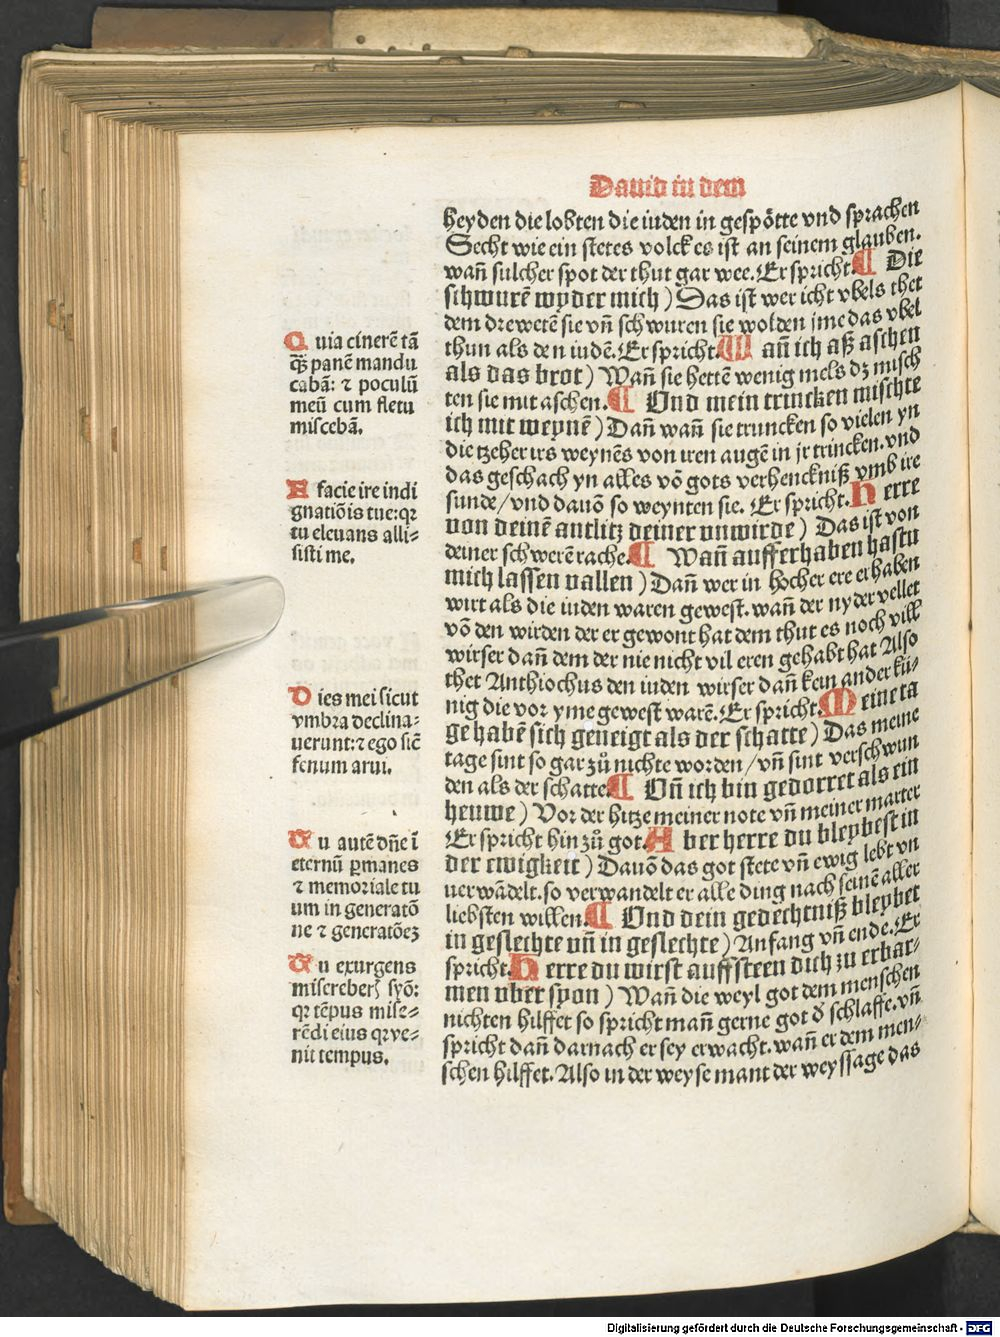 Dauid in dem
heyden die lobten die iuden in gespötte vnd sprachen
Secht wie ein stetes volck es ist an seinem glauben.
wañ sulcher spot der thut gar wee. Er spricht. ¶ Die
schwurē wyder mich) Das ist wer icht vbels thet
dem drewetē sie vñ schwuren sie wolden jme das vbel
thun als den iudē. Er spricht. Wañ ich aß aschen
als das brot) Wañ sie hettē wenig mels dz misch
ten sie mit aschen. ¶ Vnd mein trincken mischte
ich mit weynē) Dañ wañ sie truncken so vielen yn
die tzeher irs weynēs von iren augē in jr trincken. vnd
das geschach yn alles vō gots verhenckniß vmb ire
sunde/vnd dauō so weynten sie. Er spricht. Herre
von deinē antlitz deiner vnwirde) Das ist von
deiner schwerē rache. ¶ Wañ aufferhaben hastu
mich lassen vallen) Dañ wer in hocher ere erhaben
wirt als die iuden waren gewest. wañ der nyder vellet
vō den wirden der er gewont hat dem thut es noch vill
wirser dañ dem der nie nicht vil eren gehabt hat Also
thet Anthiochus den iuden wirser dañ kein ander kü-
nig die vor yme gewest warē. Er spricht. Meine ta
ge habē sich geneigt als der schatte) Das meine
tage sint so gar zů nichte worden/vñ sint verschwun
den als der schatte ¶ Vñ ich bin gedorret als ein
heuwe) Vor der hitze meiner note vñ meiner marter
Er spricht hin zů got. Aber herre du bleybest in
der ewigkeit) Dauō das got stete vñ ewig lebt vn
uerwādelt. so verwandelt er alle ding nach seinē aller
liebsten willen. ¶ Vnd dein gedechtniß bleybet
in geslechte vñ in geslechte) Anfang vñ ende. Er
spricht. Herre du wirst auffsteen dich zu erbar-
men vber syon) Wañ die weyl got dem menschen
nichten hilffet so spricht mañ gerne got d̕ schlaffe. vñ
spricht dañ darnach er sey erwacht. wañ er dem men-
schen hilffet. Also in der weyse mant der weyssage das
Quia cinerē tā
qꝫ panē mandu
cabā: ⁊ poculū
meū cum fletu
miscebā.
A facie ire indi
gnatiōis tue: qꝛ
tu eleuans alli-
sisti me.
Dies mei sicut
vmbra declina-
uerunt: ⁊ ego sic̄
fenum arui.
Tu autē dn̄e ī
eternū ꝑmanes
⁊ memoriale tu
um in generatō
ne ⁊ generatōeꝫ
Tu exurgens
misereber̕ syō:
qꝛ tēpus mise-
rēdi eius qꝛ ve-
nit tempus.
Digitalisierung gefördert durch die Deutsche Forschungsgemeinschaft - DFG